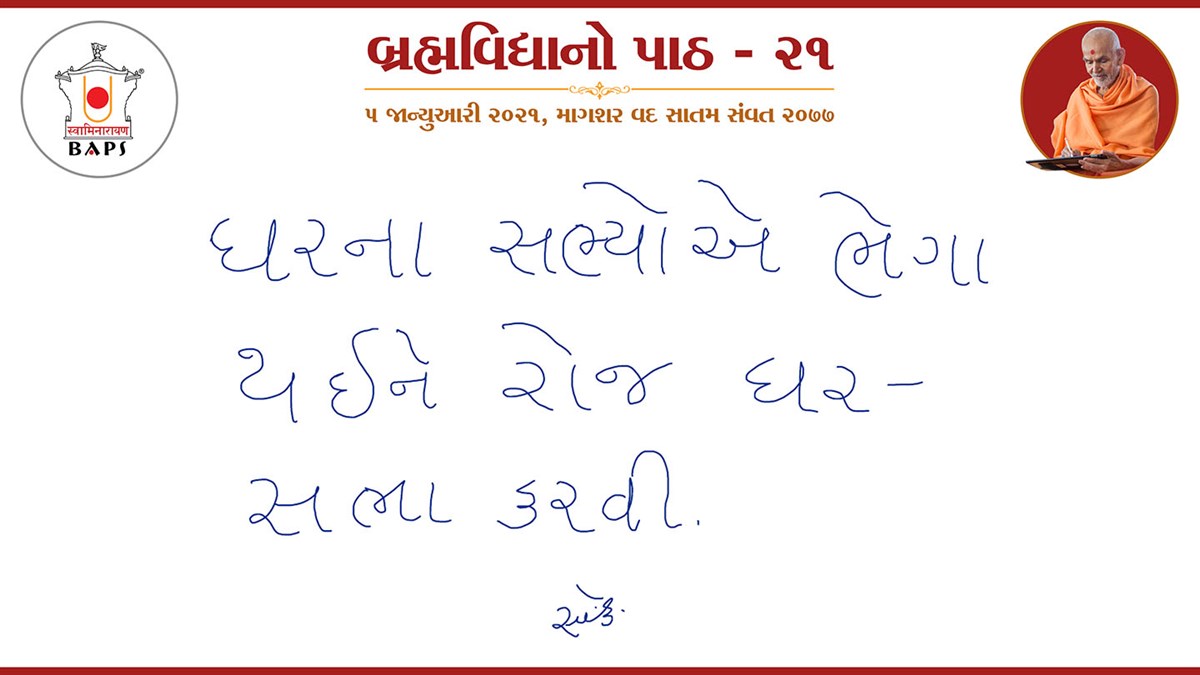 બ્રહ્મવિદ્યાનો પાઠ - ૨૧
૫ જાન્યુઆરી ૨૦૨૧, માગશર વદ સાતમ સંવત ૨૦૭૭
स्वामिनारायण
BAPS
ઘરના સભ્યોએ ભેગા
થઈને રોજ ઘર-
સભા કરવી.